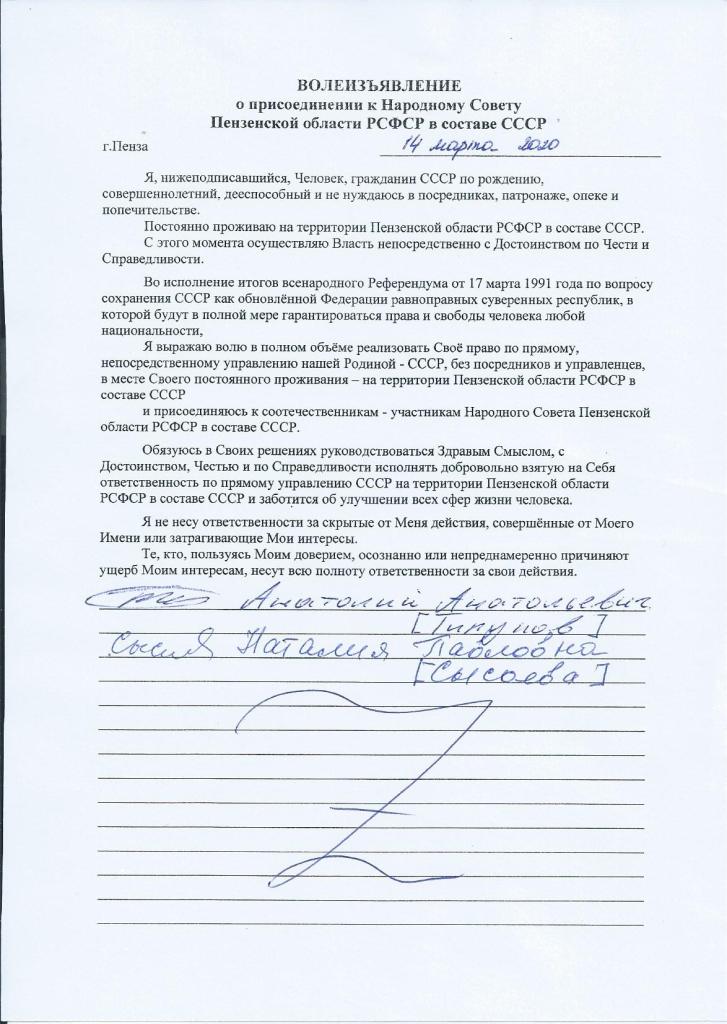 ВОЛЕИЗЪЯВЛЕНИЕ
о присоединении к Народному Совету
Пензенской области РСФСР в составе СССР
г.Пенза 14 марта 2020
Я, нижеподписавшийся, Человек, гражданин СССР по рождению,
совершеннолетний, дееспособный и не нуждаюсь в посредниках, патронаже, опеке и
попечительстве.
Постоянно проживаю на территории Пензенской области РСФСР в составе СССР.
С этого момента осуществляю Власть непосредственно с Достоинством по Чести и
Справедливости.
Во исполнение итогов всенародного Референдума от 17 марта 1991 года по вопросу
сохранения СССР как обновлённой Федерации равноправных суверенных республик, в
которой будут в полной мере гарантироваться права и свободы человека любой
национальности,
Я выражаю волю в полном объёме реализовать Своё право по прямому,
непосредственному управлению нашей Родиной - СССР, без посредников и управленцев,
в месте Своего постоянного проживания – на территории Пензенской области РСФСР в
составе СССР
и присоединяюсь к соотечественникам - участникам Народного Совета Пензенской
области РСФСР в составе СССР.
Обязуюсь в Своих решениях руководствоваться Здравым Смыслом, с
Достоинством, Честью и по Справедливости исполнять добровольно взятую на Себя
ответственность по прямому управлению СССР на территории Пензенской области
РСФСР в составе СССР и заботится об улучшении всех сфер жизни человека.
Я не несу ответственности за скрытые от Меня действия, совершённые от Моего
Имени или затрагивающие Мои интересы.
Те, кто, пользуясь Моим доверием, осознанно или непреднамеренно причиняют
ущерб Моим интересам, несут всю полноту ответственности за свои действия.
Анатолий Анатольевич
[Тикунов]
Наталия Павловна
[Сысоева]